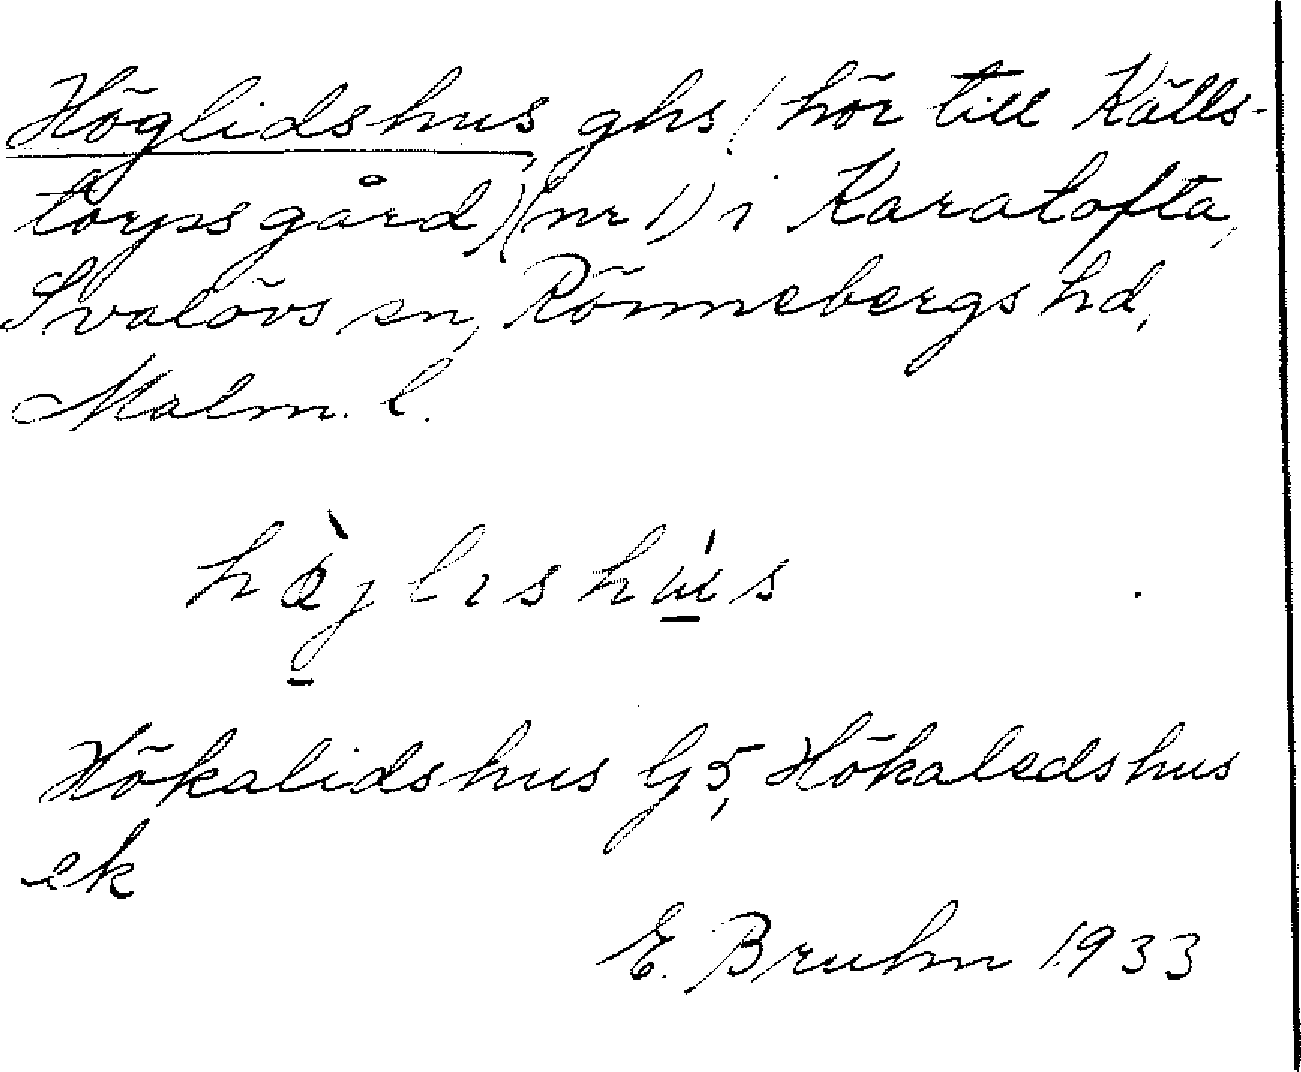 Höglidshus, ghs (hör till Källs-
torpsgård) (nr 1) i Karatofta,
Svalövs sn, Rönnebergs hd,
Malm. l.
hø̀jlıshús
Hökalidshus G5, Hökaledshus
ek
E. Bruhn 1933